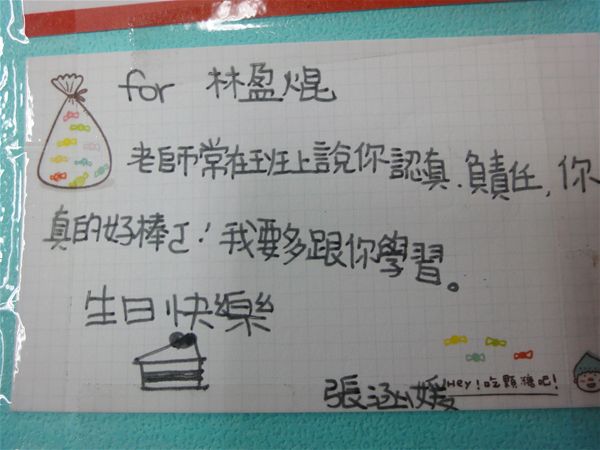 for 林盈焜
老師常在班上說你認真、負責任,你
真的好棒ㄛ!我要多跟你學習。
生日快樂
Hey!吃顆糖吧!
張涵媛